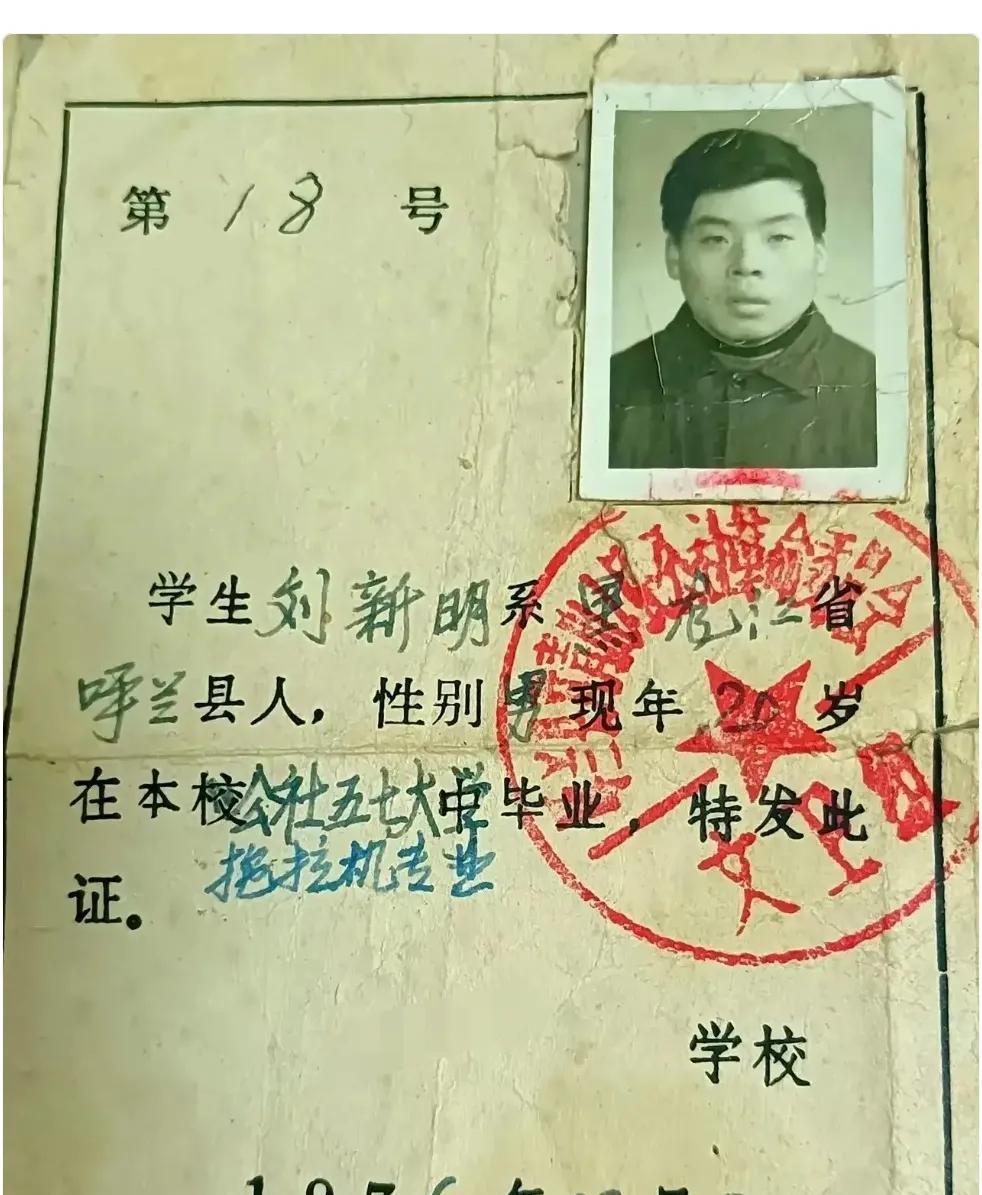 第 18 号
学生刘新明系黑龙江省
呼兰县人，性别男现年20岁
在本校公社五七大学毕业，特发此
拖拉机专业
证。
学校